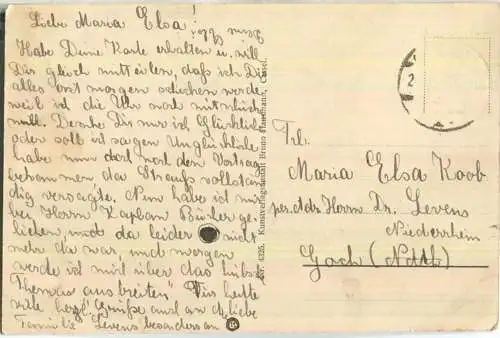 Liebe Maria Elsa!
Habe Deine Karte erhalten u. will
Dir gleich mitteilen, daß ich Dir
alles erst morgen schicken werde
weil ich die Uhr noch
will. Denke Dir nur ich Glückliche
oder soll ich sagen Unglückliche
habe nun dort noch den Vortrag
bekommen da Strauß vollstän-
dig versagte. Nun habe ich mir
bei Herrn Kaplan Bücher ge-
liehen, und da leider nicht
mehr da war, und morgen
werde ich mir über das
Thema "ausbreiten" Für heute
viele herzl. Grüße auch an die liebe
Familie Levens besonders an
Nr. 4326. Kunstverlagsanstalt Bruno Hansmann, Cassel.
2
Frl.
Maria Elsa Koob
per. adr. Herrn Dr. Levens
Niederrhein
Goch (Ndrh)